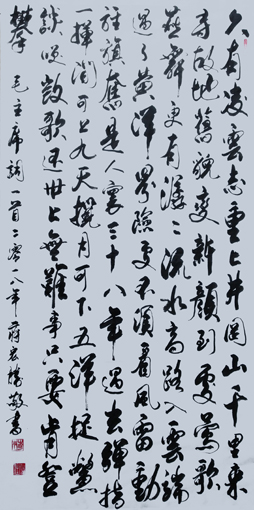 久有凌雲志重上井岡山千里來
尋故地舊貌變新顏到處鶯歌
燕舞更有潺々流水高路入雲端
過了黃洋界險處不須看風雷動
旌旗奮是人寰三十八年過去彈指
一揮間可上九天攬月可下五洋捉鱉
談笑凱歌還世上無難事只要肯登
攀 毛主席詞一首二零一八年蔣敬書